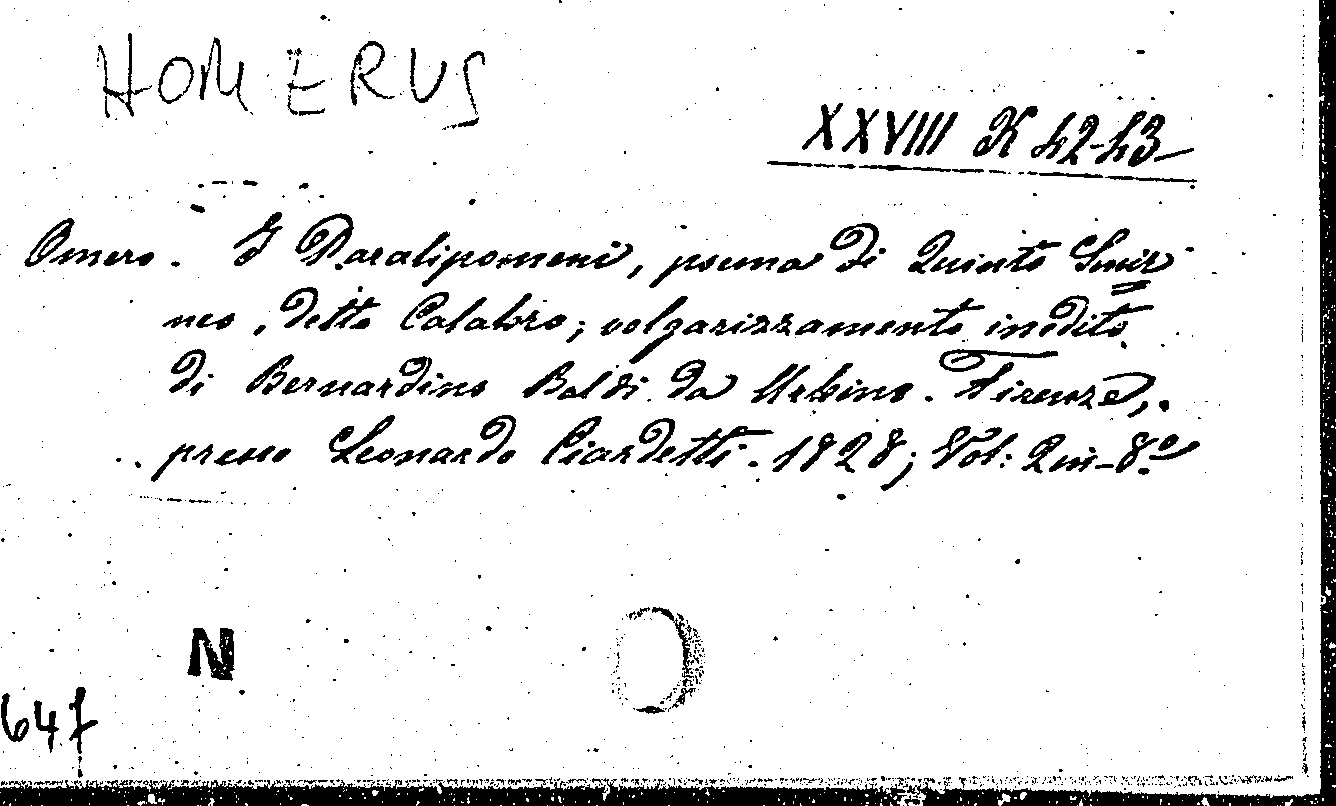 HOMERUS
XXVIII K 42-43
Omero. I Paralipomeni, poema di Quinto Smir
neo, detto Calabro; volgarizzamento inedito
di Bernardino Baldi da Urbino. Firenze,
presso Leonardo Ciardetti. 1828; Vol: 2 in-8.º
N
647